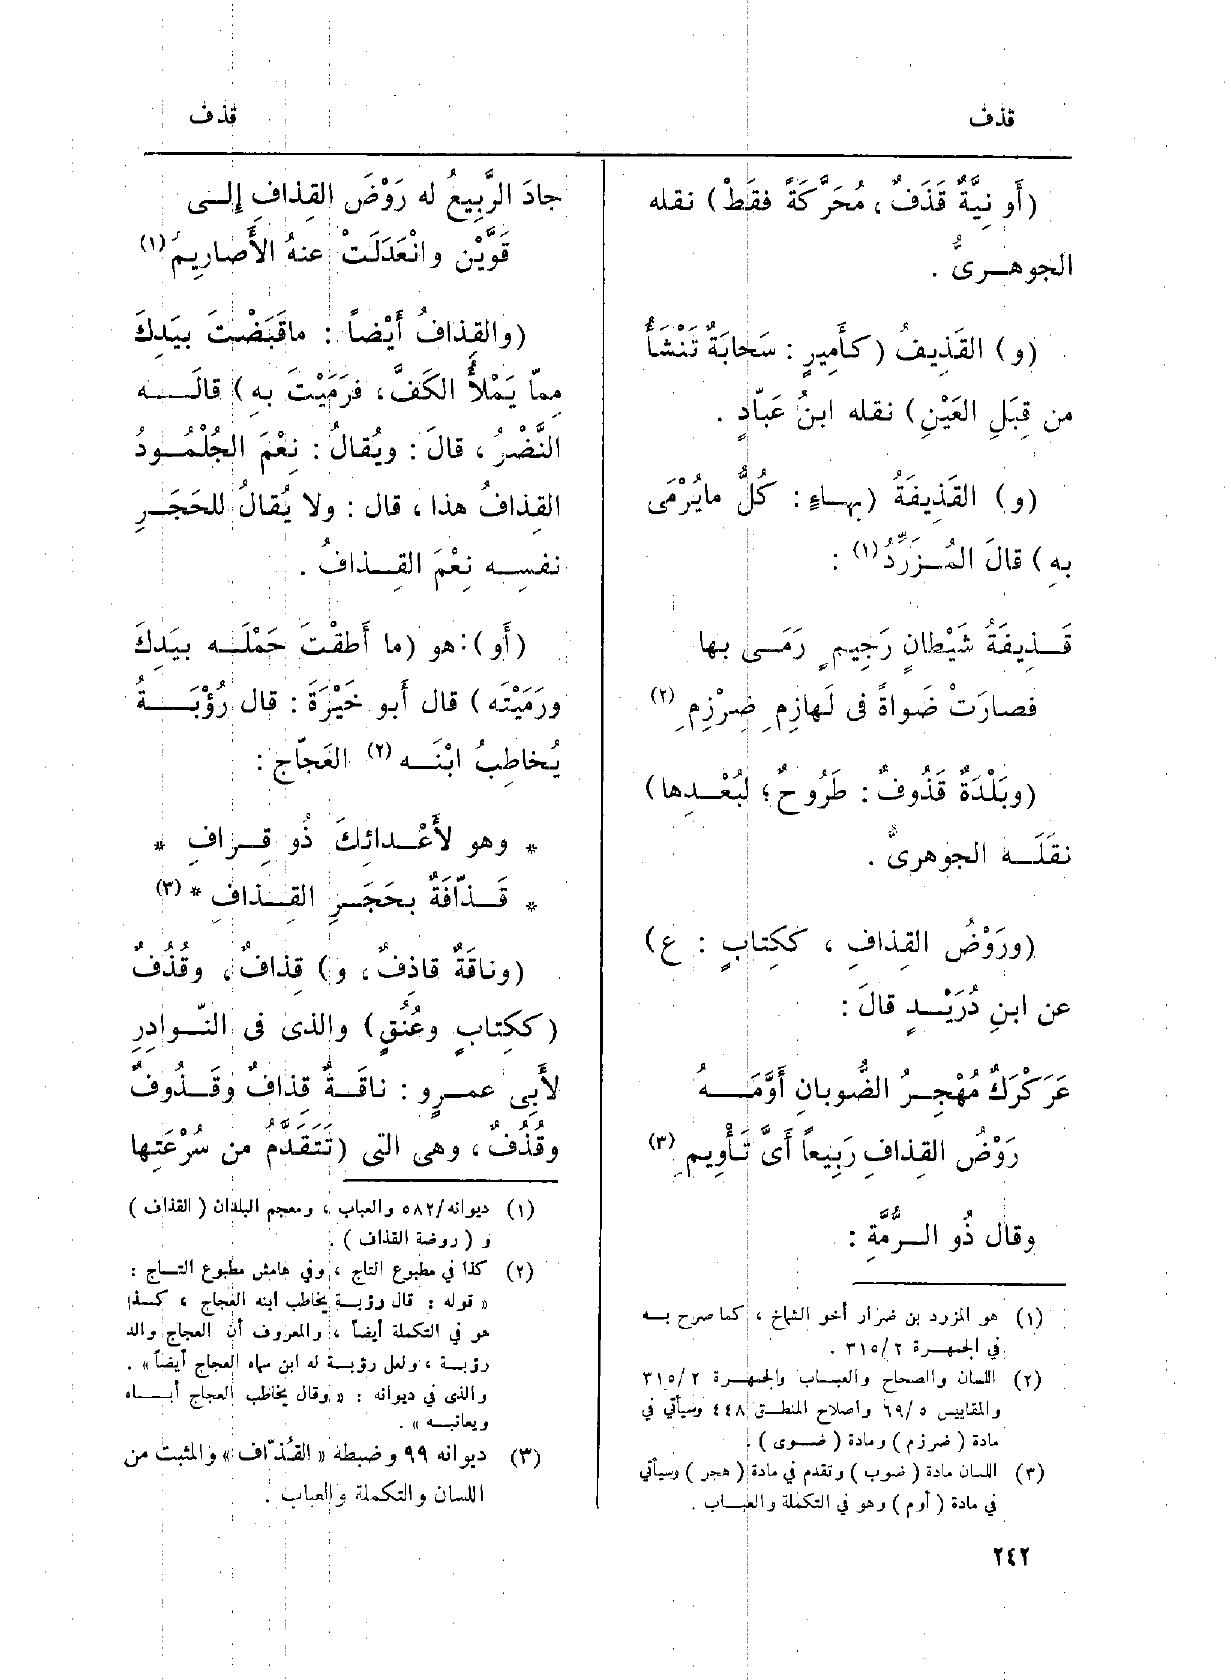 قذف
قذف
(أو نِيَّةٌ قَذَفٌ، مُحَرَّكَةً فقَطْ) نقله
الجوهـرىُّ .
(و) القَذِيفُ (كأَمِيرٍ : سَحابَةٌ تَنْشَأُ
من قِبَلِ العَيْنِ) نقله ابنُ عَبّادٍ .
(و) القَذِيفَةُ (بهـاءٍ : كُلُّ مايُرْمَى
بِه) قالَ المُـزَرِّدُ(١) :
قَـذِيفَةُ شَيْطانٍ رَجِيمٍ رَمَـى بها
فصارَتْ ضَواةً فى لَهازِمِ ضِرْزِمِ (٢)
(وبَلْدَةٌ قَذُوفٌ : طَرُوحٌ؛ لبُعْـدِها)
نقَلَـه الجوهرىُّ .
(ورَوْضُ القِذافِ ، ككِتابٍ : ع)
عن ابنِ دُرَيْـدٍ قالَ :
عَرَكْرَكٌ مُهْجِـرُ الضُّوبانِ أَوَّمَـهُ
رَوْضُ القِذافِ رَبِيعاً أَىَّ تَأْوِيمِ (٣)
وقال ذُو الـرُّمَّةِ :
(١) هو المزرد بن ضرار أخو الشماخ ، كما صرح بـه
في الجمهـرة ٢/ ٣١٥ .
(٢) اللسان والصحاح والعبـاب والجمهـرة ٢/ ٣١٥
والمقاييس ٥/ ٦٩ واصلاح المنطـق ٤٤٨ وسيأتي في
مادة ( ضرزم ) ومادة ( ضـوى ) .
(٣) اللسان مادة ( ضوب ) وتقدم في مادة ( هجر ) وسيأتي
في مادة ( أوم ) وهو في التكملة والعبـاب .
جادَ الرَّبِيعُ له رَوْضَ القِذافِ إِلـى
قَوَّيْنِ وانْعَدَلَتْ عنهُ الأَصارِيمُ (١)
(والقِذافُ أَيْضاً : ماقَبَضْتَ بيَدِكَ
مِمّا يَمْلأُ الكَفَّ، فرَمَيْتَ بِه) قالَـه
النَّضْرُ ، قالَ : ويُقالُ : نِعْمَ الجُلْمُـودُ
القِذافُ هذا ، قال : ولا يُقالُ للحَجَـرِ
نفسِـه نِعْمَ القِـذافُ .
(أو): هو (ما أَطَقْتَ حَمْلَـه بيَدِكَ
ورَمَيْتَه) قال أبو خَيْرَةَ : قال رُؤْبَـةُ
يُخاطِبُ ابْنَـه (٢) العَجّاج :
* وهو لأَعْـدائِكَ ذُو قِـرافِ *
* قَـذّافَةٌ بحَجَـرِ القِـذافِ * (٣)
(وناقَةٌ قاذِفٌ، و) قِذافٌ، وقُذُفٌ
(ككِتابٍ وعُنُقٍ) والذى فى النّـوادِرِ
لأَبِى عمـرٍو : ناقَـةٌ قِذافٌ وقَـذُوفٌ
وقُذُفٌ ، وهى التى (تَتَقدَّمُ من سُرْعَتِها
(١) ديوانه/٥٨٢ والعباب ، ومعجم البلدان ( القذاف )
و ( روضة القذاف ) .
(٢) كذا في مطبوع التاج ، وفي هامش مطبوع التـاج :
« قوله : قال رؤبـة يخاطب ابنه العجاج ، كـذا
هو في التكملة أيضاً ، والمعروف أن العجاج والد
رؤبـة ، ولعل رؤبـة له ابن سماه العجاج أيضاً » .
والذى في ديوانه : « وقال يخاطب العجاج أبـاه
ويعاتبـه » .
(٣) ديوانه ٩٩ وضبطه « القُذّاف » والمثبت من
اللسان والتكملة والعباب .
٢٤٢